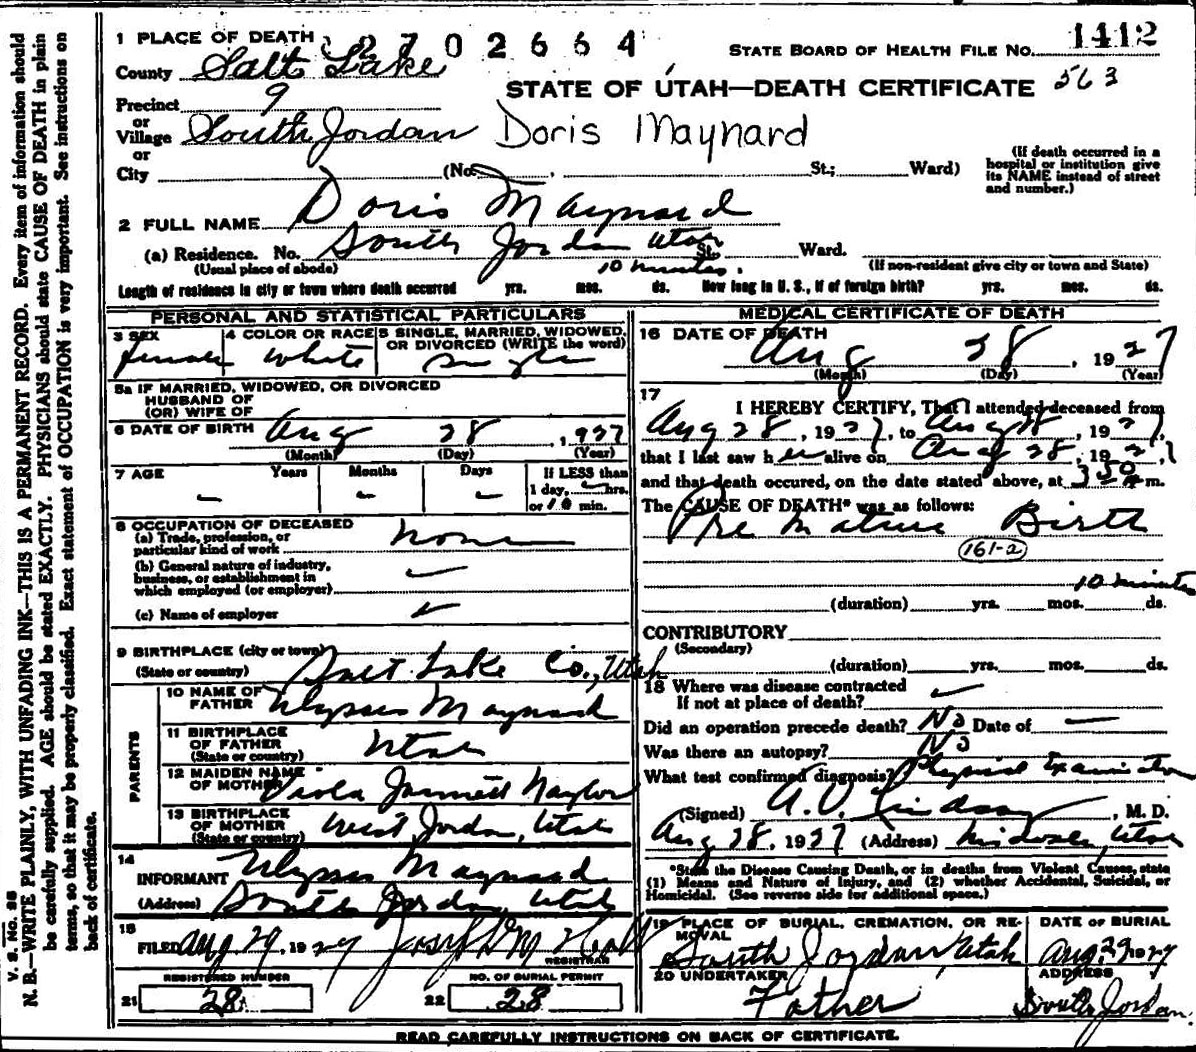 V. S. No. 
N. B.—WRITE PLAINLY, WITH UNFADING INK—THIS IS A PERMANENT RECORD. Every item of information should
be carefully supplied. AGE should be stated EXACTLY. PHYSICIANS should state CAUSE OF DEATH in plain
terms, so that it may be properly classified. Exact statement of OCCUPATION is very important. See instructions on
back of certificate.
1 PLACE OF DEATH 2702664 STATE BOARD OF HEALTH FILE NO. 1412
County Salt Lake
STATE OF UTAH—DEATH CERTIFICATE 563
Precinct 9
or
Village South Jordan Doris Maynard
or
City (No. St.; Ward)
(If death occurred in a
hospital or institution give
its NAME instead of street
and number.)
2 FULL NAME Doris Maynard
(a) Residence. No. South Jordan Utah St. Ward.
(Usual place of abode) 10 minutes. (If non-resident give city or town and State)
Length of residence in city or town where death occurred yrs. mos. ds. How long in U. S., if of foreign birth? yrs. mos. ds.
PERSONAL AND STATISTICAL PARTICULARS
3 SEX 4 COLOR OR RACE 5 SINGLE, MARRIED, WIDOWED,
OR DIVORCED (WRITE the word)
female White single
5a IF MARRIED, WIDOWED, OR DIVORCED
HUSBAND OF
(OR) WIFE OF
6 DATE OF BIRTH Aug 28, 1927
(Month) (Day) (Year)
7 AGE Years Months Days If LESS than
1 day, hrs.
— — — or 10 min.
8 OCCUPATION OF DECEASED
(a) Trade, profession, or
particular kind of work none
(b) General nature of industry,
business, or establishment in
which employed (or employer) ✓
(c) Name of employer ✓
9 BIRTHPLACE (city or town)
(State or country) Salt Lake Co., Utah
PARENTS
10 NAME OF
FATHER Ulysses Maynard
11 BIRTHPLACE
OF FATHER
(State or country) Utah
12 MAIDEN NAME
OF MOTHER Viola Jannett Naylor
13 BIRTHPLACE
OF MOTHER
(State or country) West Jordan, Utah
14
INFORMANT Ulysses Maynard
(Address) South Jordan, Utah
15
FILED Aug. 29, 1927 Joseph M Holt
REGISTRAR
REGISTERED NUMBER NO. OF BURIAL PERMIT
21 28 22 28
MEDICAL CERTIFICATE OF DEATH
16 DATE OF DEATH
Aug 28, 1927
(Month) (Day) (Year)
17
I HEREBY CERTIFY, That I attended deceased from
Aug 28, 1927, to Aug 28, 1927,
that I last saw her alive on Aug 28, 1927,
and that death occured, on the date stated above, at 350 A m.
The CAUSE OF DEATH* was as follows:
Pre mature Birth
161-2
10 minutes
(duration) yrs. mos. ds.
CONTRIBUTORY
(Secondary)
(duration) yrs. mos. ds.
18 Where was disease contracted
If not at place of death? ✓
Did an operation precede death? No Date of —
Was there an autopsy? No
What test confirmed diagnosis? Physical Examination
(Signed) A. V. Lindsay, M. D.
Aug 28, 1927 (Address) Midvale, Utah
*State the Disease Causing Death, or in deaths from Violent Causes, state
(1) Means and Nature of Injury, and (2) whether Accidental, Suicidal, or
Homicidal. (See reverse side for additional space.)
19 PLACE OF BURIAL, CREMATION, OR RE-
MOVAL
DATE OF BURIAL
South Jordan, Utah Aug. 29 1927
20 UNDERTAKER ADDRESS
Father South Jordan.
READ CAREFULLY INSTRUCTIONS ON BACK OF CERTIFICATE.